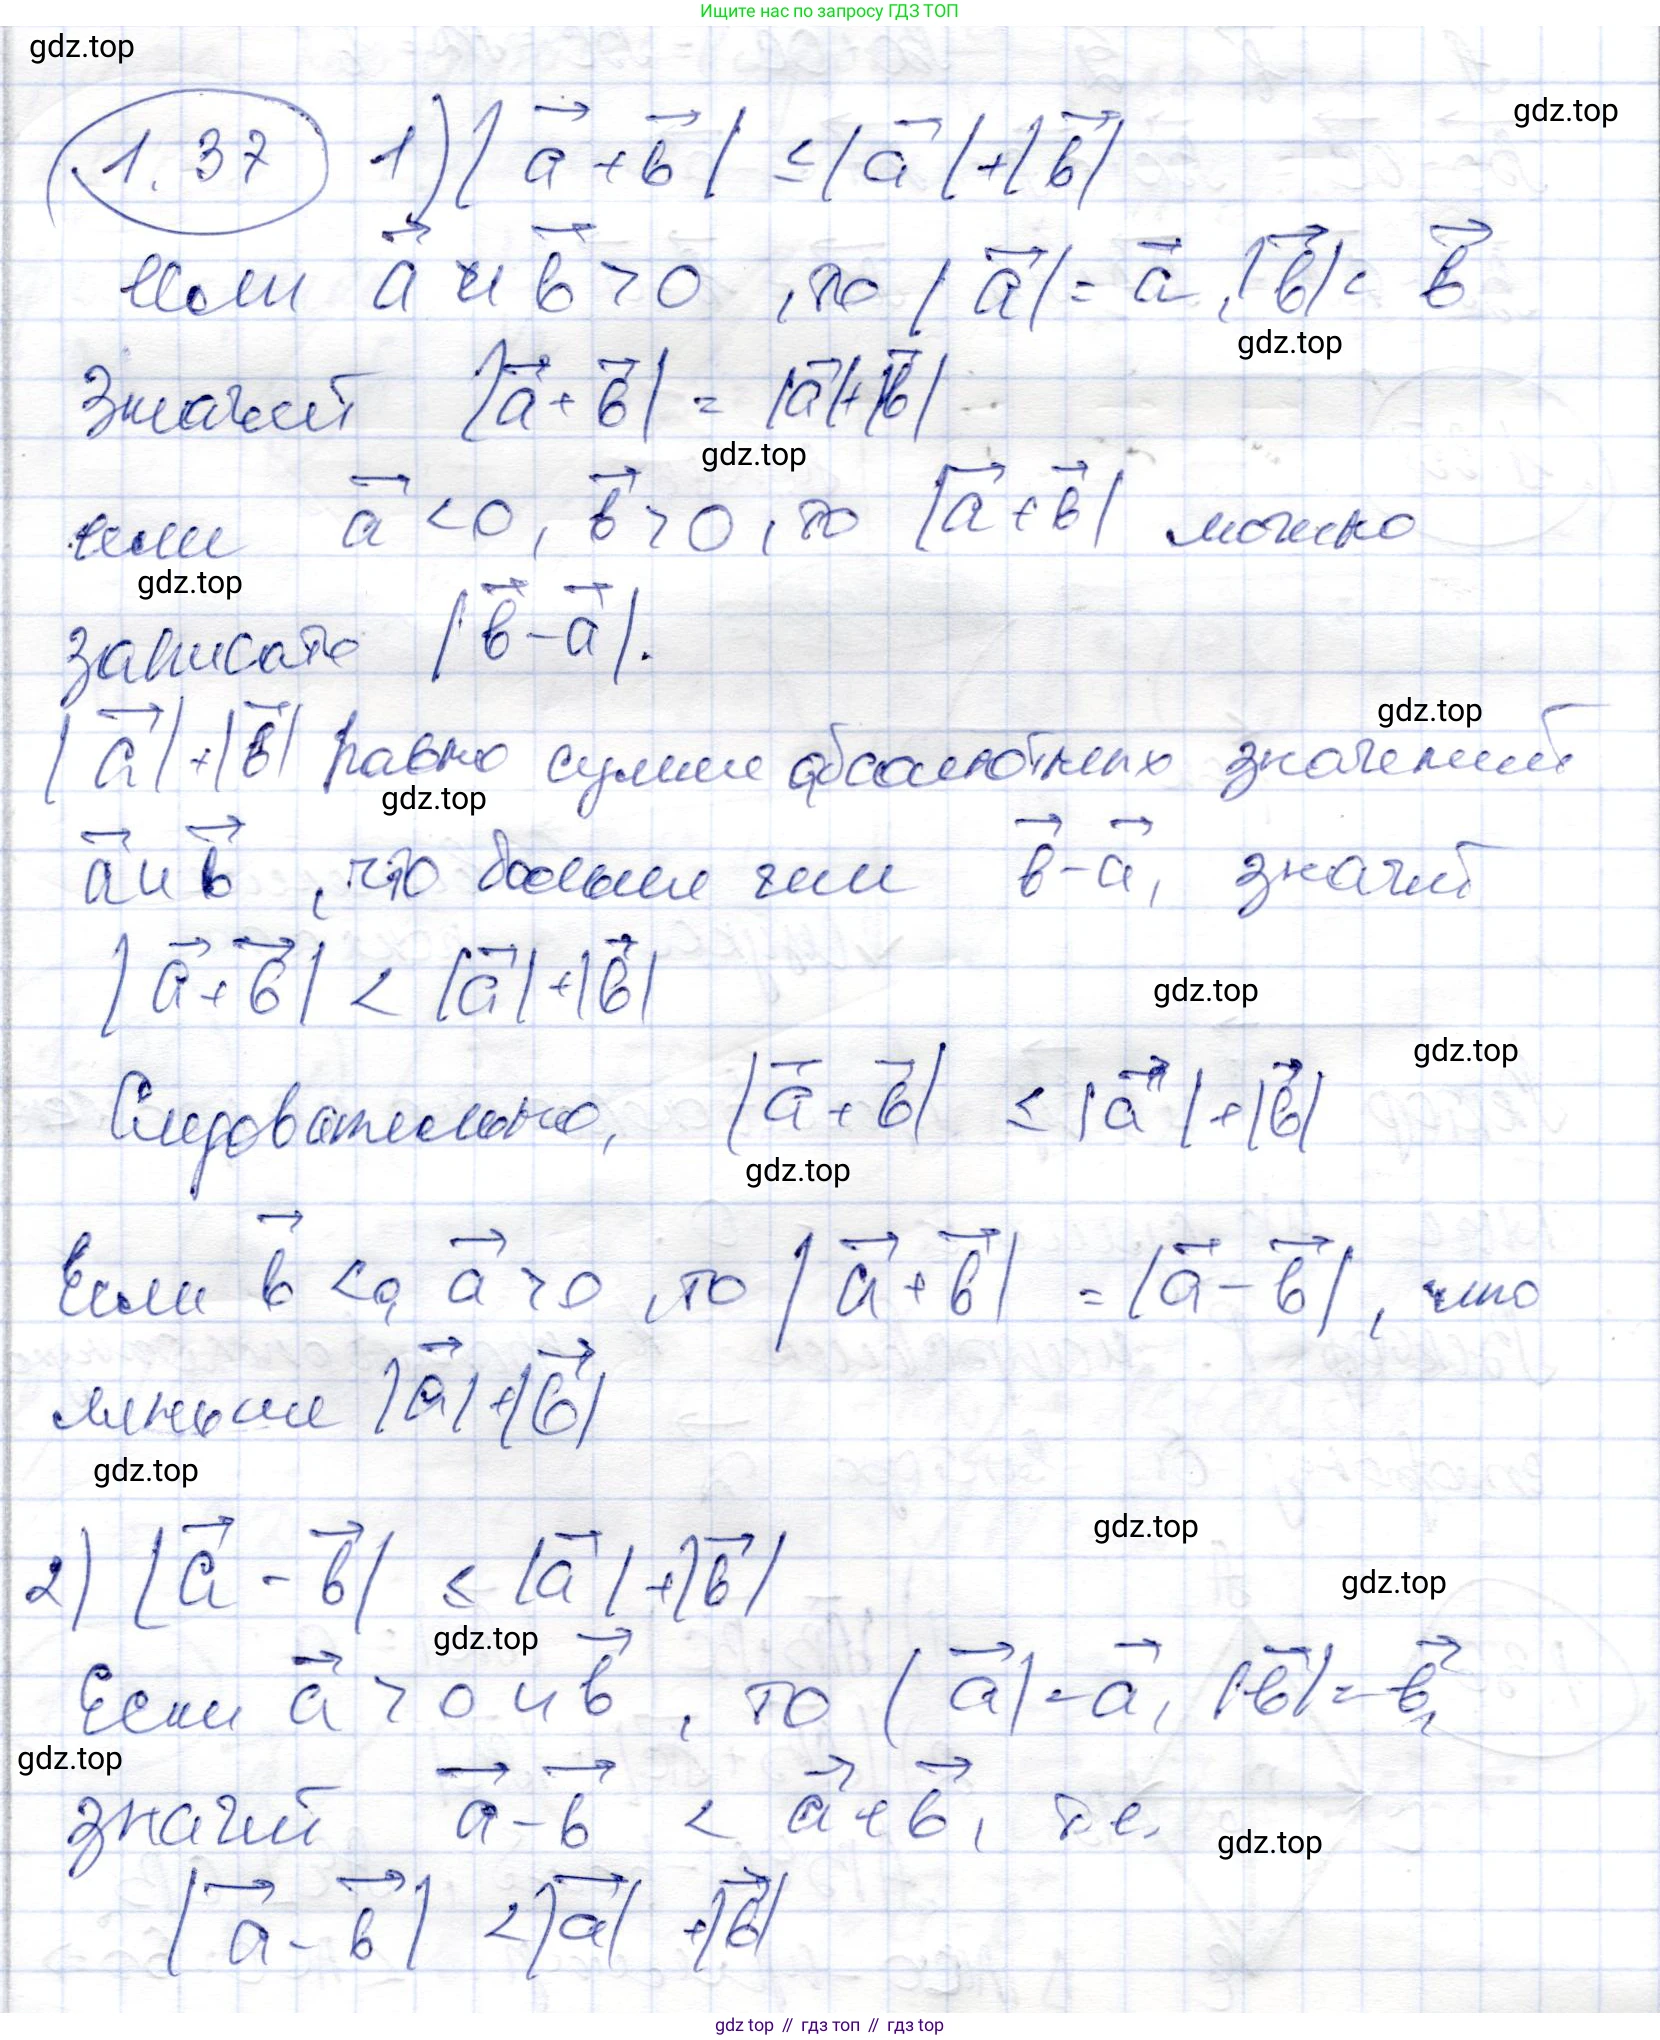 Ищите нас по запросу ГДЗ ТОП
gdz.top
gdz.top
1.37 1) |a⃗ + b⃗| ≤ |a⃗| + |b⃗|
Если a⃗ и b⃗ > 0, то |a⃗| = a⃗, |b⃗| = b⃗
gdz.top
Значит |a⃗ + b⃗| = |a⃗| + |b⃗|
gdz.top
если a⃗ < 0, b⃗ > 0, то |a⃗ + b⃗| можно
gdz.top
записать |b⃗ - a⃗|.
gdz.top
|a⃗| + |b⃗| равно сумме абсолютных значений
gdz.top
a⃗ и b⃗, что больше чем b⃗ - a⃗, значит
|a⃗ + b⃗| < |a⃗| + |b⃗|
gdz.top
gdz.top
Следовательно, |a⃗ + b⃗| ≤ |a⃗| + |b⃗|
gdz.top
Если b⃗ < 0, a⃗ > 0, то |a⃗ + b⃗| = |a⃗ - b⃗|, что
меньше |a⃗| + |b⃗|
gdz.top
gdz.top
2) |a⃗ - b⃗| ≤ |a⃗| + |b⃗|
gdz.top
gdz.top
Если a⃗ > 0 и b⃗, то |a⃗| = a⃗, |b⃗| = b⃗,
gdz.top
значит a⃗ - b⃗ < a⃗ + b⃗, т.е.
gdz.top
|a⃗ - b⃗| < |a⃗| + |b⃗|
gdz.top // гдз топ // гдз.top